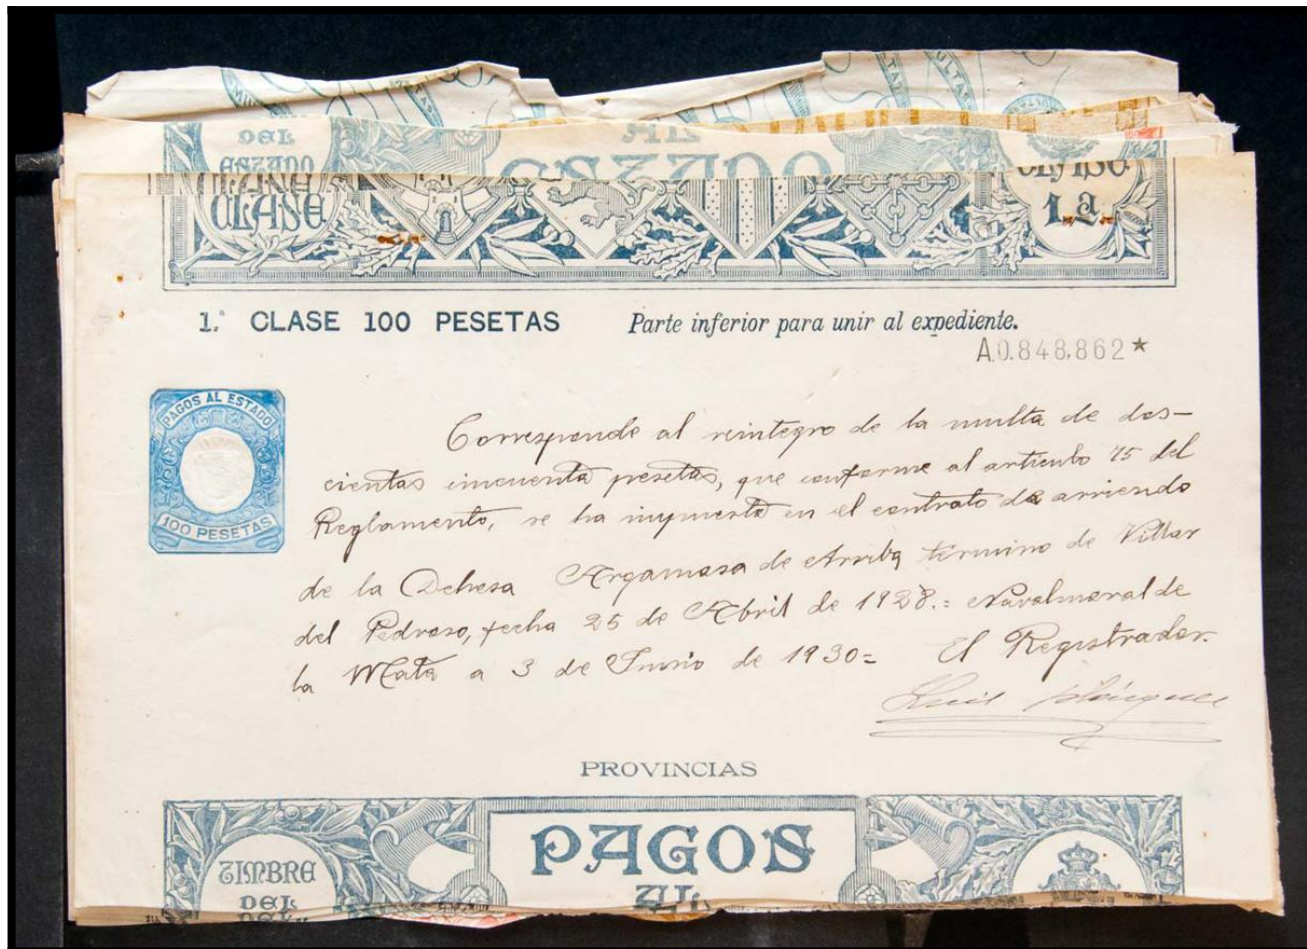 MULTAS
MULTAS
DEL
ESTADO
AL
ESTADO
CLASE
CLASE
1.a
1.ª CLASE 100 PESETAS
Parte inferior para unir al expediente.
A.0.848.862★
PAGOS AL ESTADO
100 PESETAS
Corresponde al reintegro de la multa de dos-
cientas cincuenta pesetas, que conforme al artículo 75 del
Reglamento, se ha impuesto en el contrato de arriendo
de la Dehesa Argamasa de Arriba término de Villar
del Pedroso, fecha 25 de Abril de 1928.= Navalmoral de
la Mata a 3 de Junio de 1930= El Registrador.
PROVINCIAS
TIMBRE
DEL
PAGOS
AL